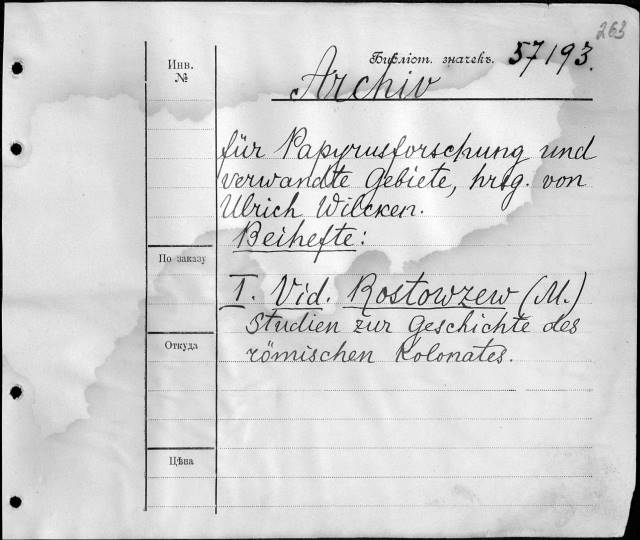 263
Инв.
№
Библіот. значекъ. 57193.
Archiv
für Papyrusforschung und
verwandte Gebiete, hrsg. von
Ulrich Wilcken.
Beihefte:
По заказу
I. Vid. Rostowzew (M.)
Studien zur Geschichte des
Откуда
römischen Kolonates.
Цѣна